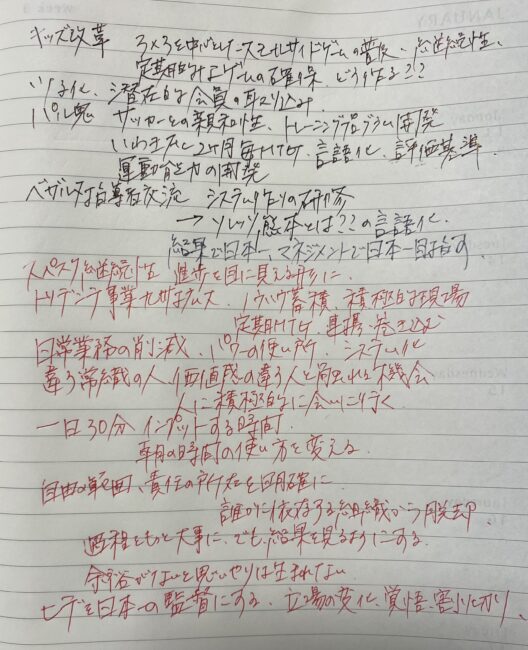 キッズ改革 3×3を中心としたスモールサイドゲームの普及、継続性、
定期的なゲームの確保、どう作る??
いわき化、潜在的会員の取り込み
バル鬼 サッカーとの親和性、トレーニングプログラム開発
いわきFCと2ヶ月毎MTG、言語化、評価基準、
運動能力の開発
ベガルタ指導者交流 システム作りの研修
→ ソレッソ熊本とは??の言語化、
結果で日本一、マネジメントで日本一目指す
スペスク継続性 進歩を目に見える形に、
トリデンテ事業 ノウハウ蓄積、積極的現場
定期MTG、
日常業務の削減、パワーの使い所、システム化
違う常識の人、価値感の違う人と触れる機会
人に積極的に会いに行く
一日30分インプットする時間、
朝の時間の使い方を変える
自由の範囲、責任の所在を明確に
誰かに依存する組織から脱却、
過程をもっと大事に、でも結果を見るようにする、
余裕がないと思いやりは生まれない
ヒデを日本一の監督にする、立場の変化、覚悟、割り切り、
JANUARY